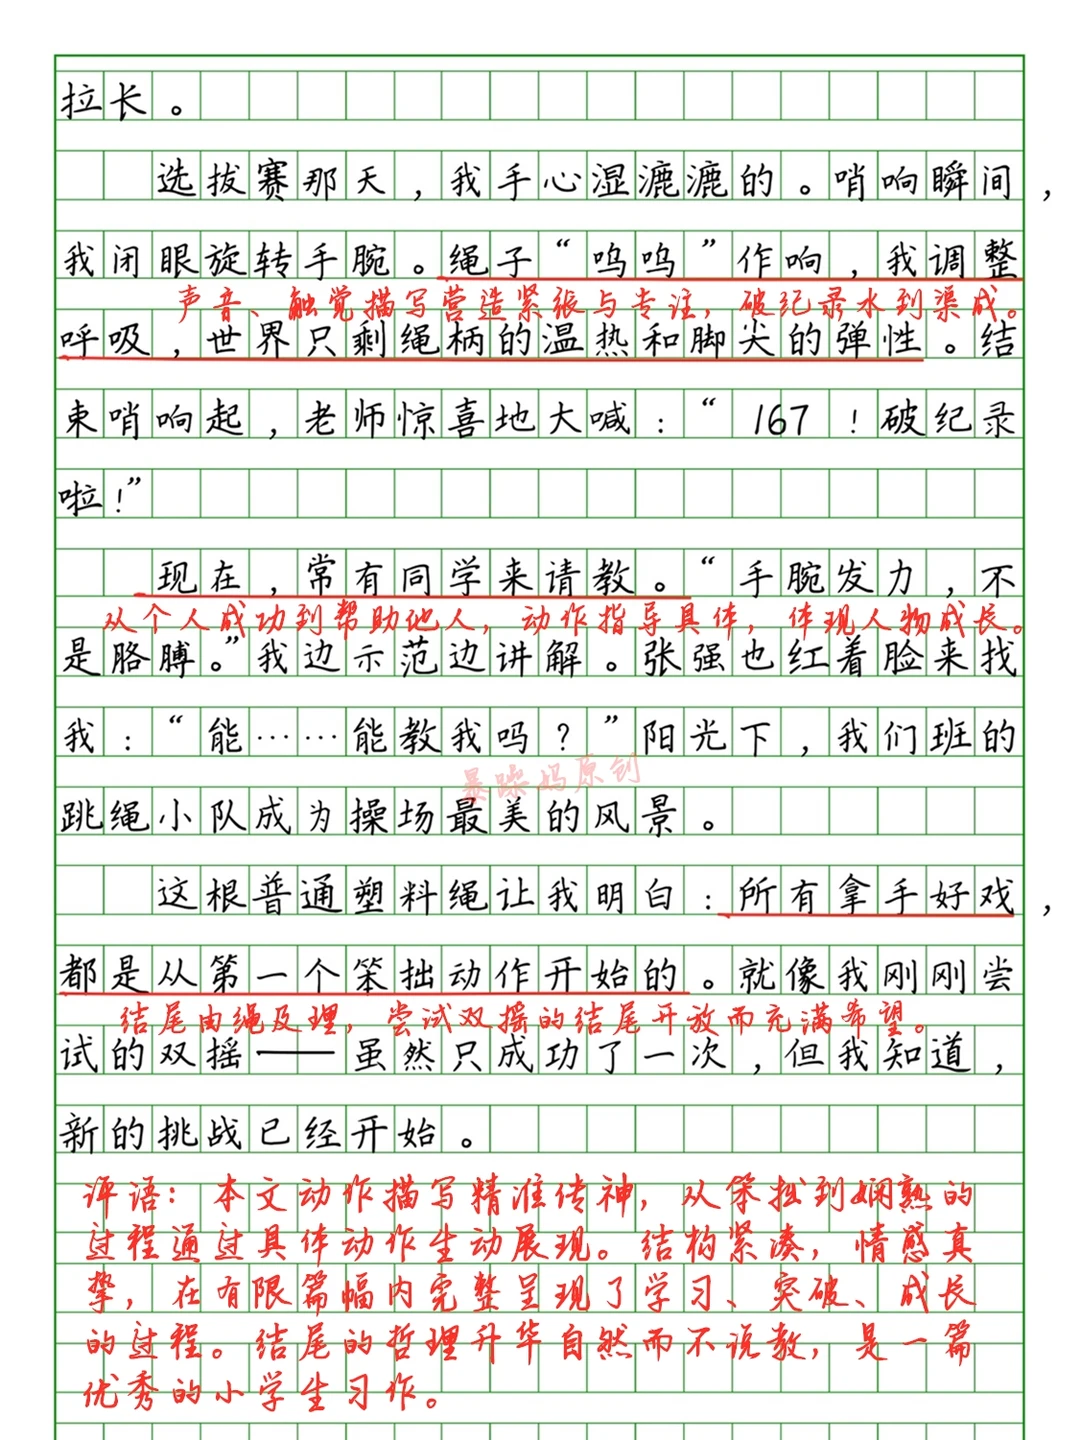 拉长。
选拔赛那天，我手心湿漉漉的。哨响瞬间，
我闭眼旋转手腕。绳子“呜呜”作响，我调整
声音、触觉描写营造紧张与专注，破纪录水到渠成。
呼吸，世界只剩绳柄的温热和脚尖的弹性。结
束哨响起，老师惊喜地大喊：“167！破纪录
啦！”
现在，常有同学来请教。“手腕发力，不
从个人成功到帮助他人，动作指导具体，体现人物成长。
是胳膊。”我边示范边讲解。张强也红着脸来找
我：“能……能教我吗？”阳光下，我们班的
暴躁妈原创
跳绳小队成为操场最美的风景。
这根普通塑料绳让我明白：所有拿手好戏，
都是从第一个笨拙动作开始的。就像我刚刚尝
结尾由绳及理，尝试双摇的结尾开放而充满希望。
试的双摇——虽然只成功了一次，但我知道，
新的挑战已经开始。
评语：本文动作描写精准传神，从笨拙到娴熟的
过程通过具体动作生动展现。结构紧凑，情感真
挚，在有限篇幅内完整呈现了学习、突破、成长
的过程。结尾的哲理升华自然而不说教，是一篇
优秀的小学生习作。